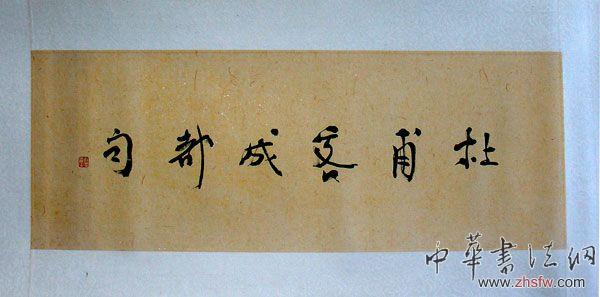 杜甫客成都句
中華書法網
www.zhsfw.com